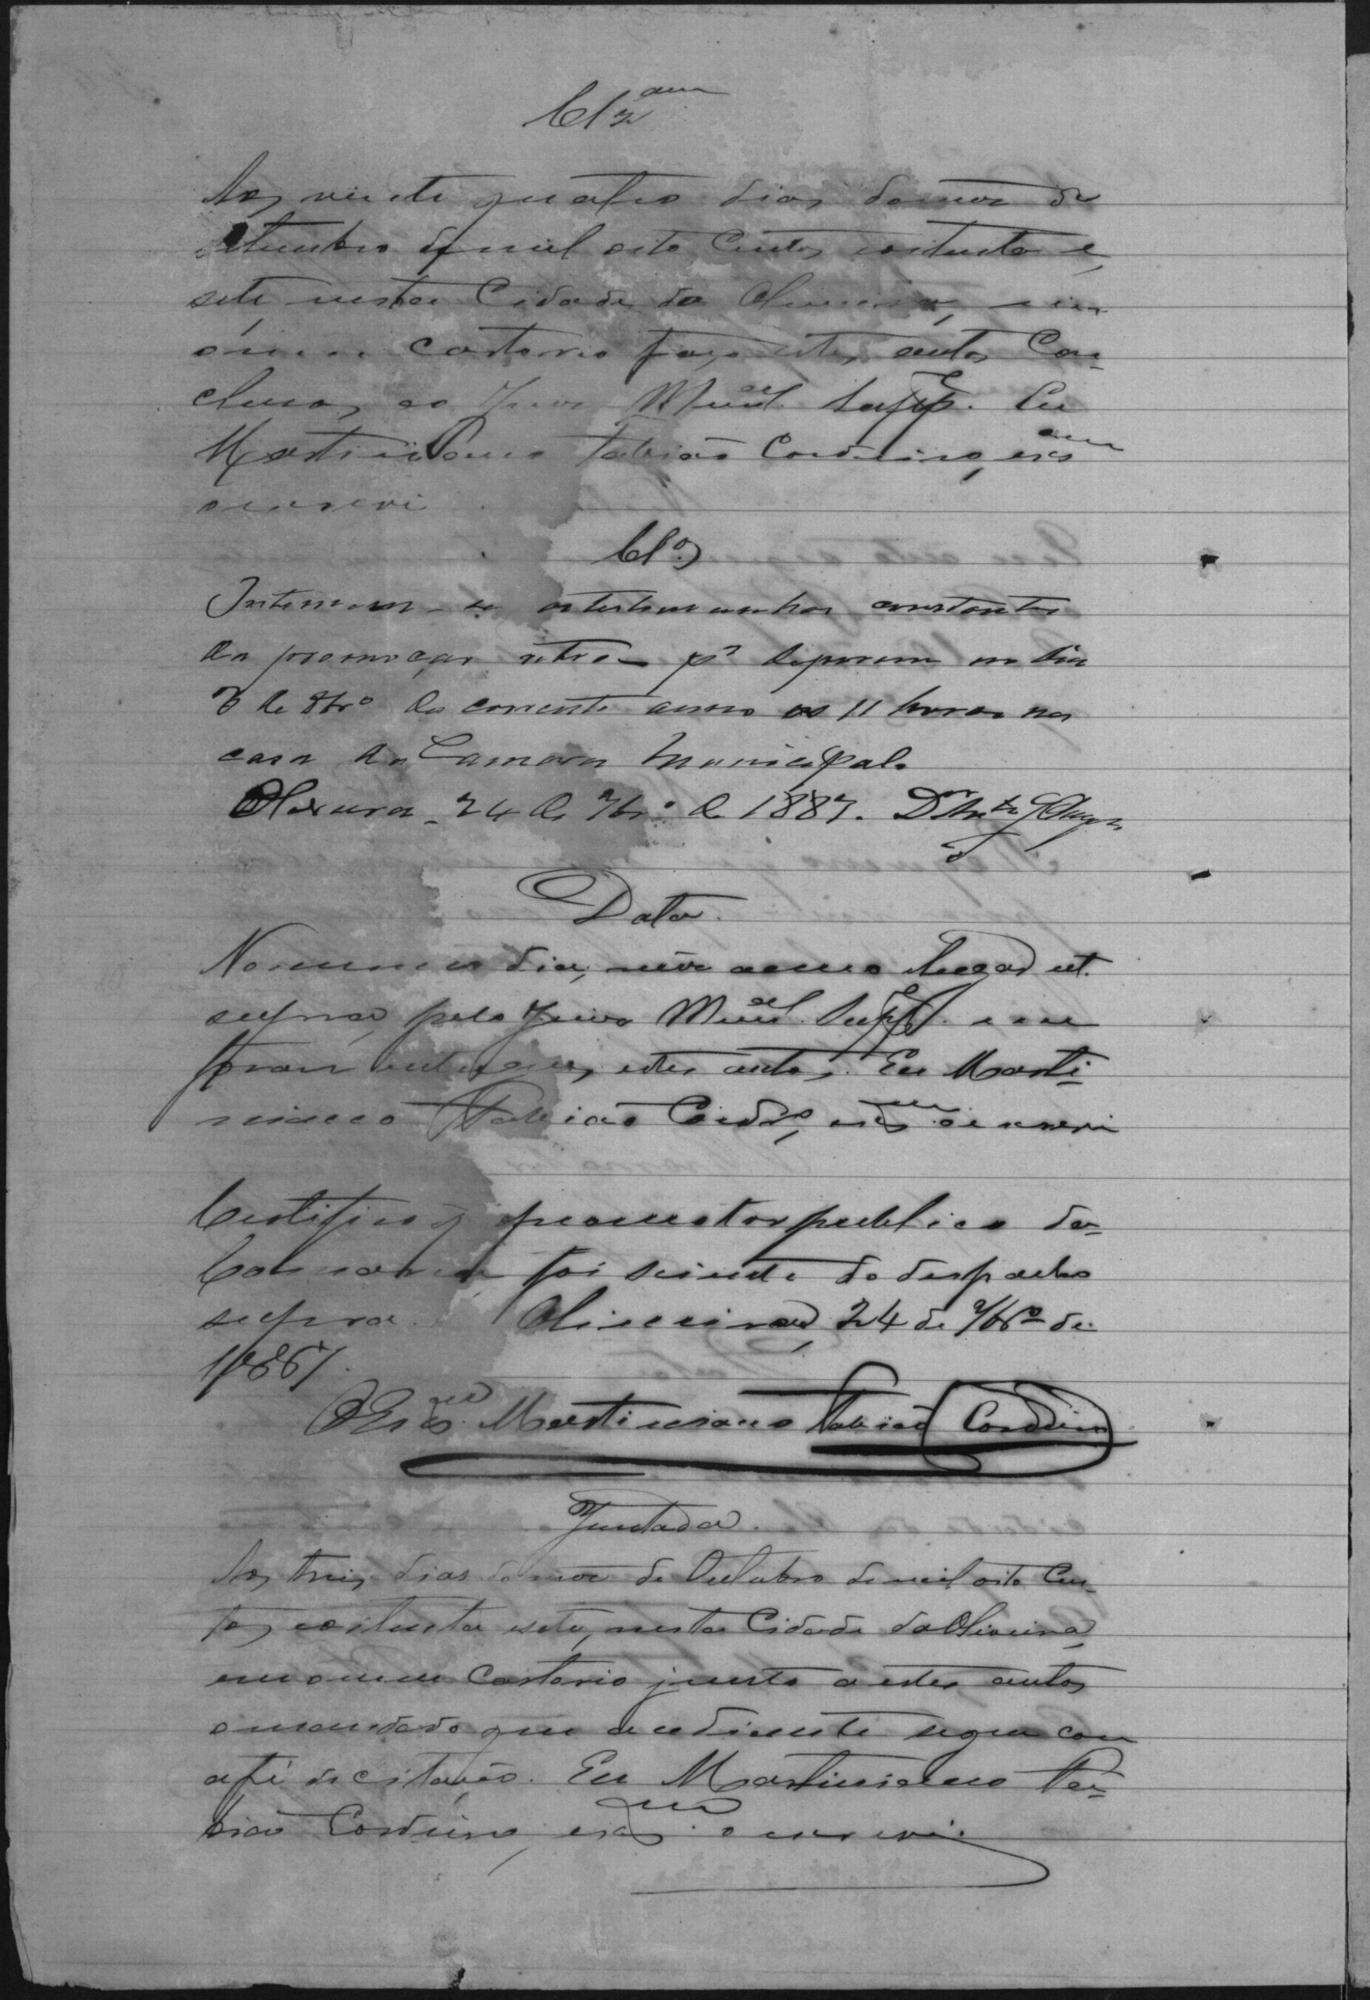 Clz am
Aos vinte quatro dias do mez de
Setembro de mil oito Centos e oitenta e
sete nesta Cidade da Oliveira, em
o meu cartorio faço estes autos Con-
clusos, ao Juiz Mual Supp. Eu
Martiniano Fabião Cordeiro, escam
o escrevi
Clos
Intimem-se as testemunhas constantes
da promoção retro pa deporem no dia
3 de 8bro do corrente anno as 11 horas na
casa da Camara Municipal.
Oliveira 24 de 7bro de 1887. Dr
Data.
No mesmo dia, mez anno lugar ut
supra, pelo Juiz Mual. Supp. me
foram entregues estes autos. Eu Marti-
niano Fabião Cordro, escam o escrevi
Certifico q promotor publico da
Comarca foi sciente do despacho
supra. Oliveira, 24 de 7bro de
1887.
O Escam Martiniano Fabião Cordeiro
Juntada.
Aos tres dias do mez de Outubro de mil oito Cen-
tos e oitenta e sete, nesta Cidade da Oliveira,
em o meu Cartorio junto a estes autos
o mandado que adiante segue com
a fé de citação. Eu Martiniano Fa-
bião Cordeiro, escam o escrevi.